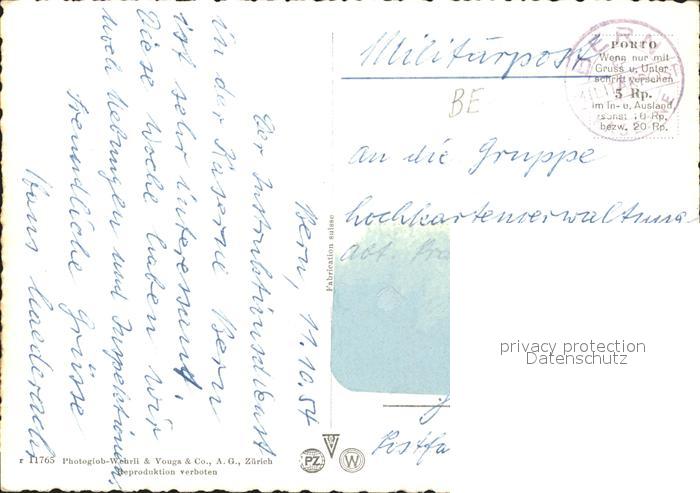 Bern, 11.10.54
Der Instruktionsdienst
in der Kaserne Bern
ist sehr interessant.
Diese Woche haben wir
noch Uebungen und Inspektionen.
Freundliche Grüsse
Hans
Militärpost
BE
PORTO
Wenn nur mit
Gruss u. Unter-
schrift versehen
5 Rp.
im In- u. Ausland
sonst 10 Rp.
bezw. 20 Rp.
BERN
An die Gruppe
Lochkartenverwaltung
Abt.
Postfa
Fabrication suisse
privacy protection
Datenschutz
r 11765 Photoglob-Wehrli & Vouga & Co., A. G., Zürich
Reproduktion verboten
PZ
V
W